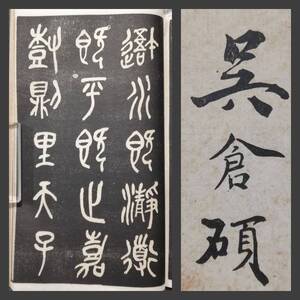 䢭水既瀞衜
既平既止嘉
尌則里天子
吳倉碩